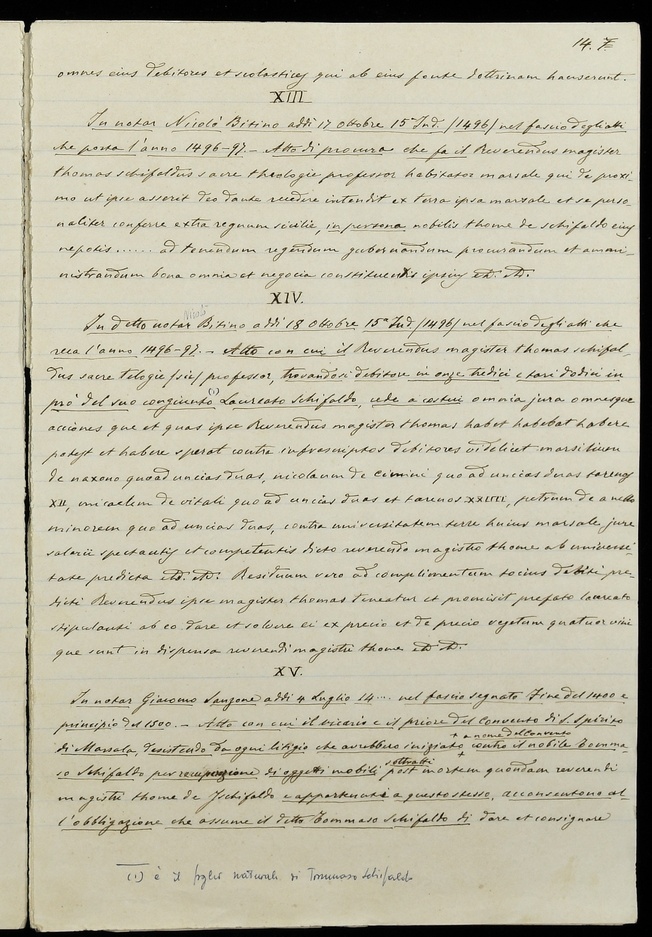 14. 7.
omnes eius debitores et scolasticos qui ab eius fonte dottrinam hauserunt.
XIII
In notar Nicolò Bitino addì 17 Ottobre 15 Ind. /1496/ nel fascio degli atti
che porta l'anno 1496-97. - Atto di procura che fa il Reverendus magister
thomas schifaldus sacre theologie professor habitator marsale qui de proxi-
mo ut ipse asserit deo dante recedere intendit ex terra ipsa marsale et perso-
naliter conferre extra regnum sicilie, in persona nobilis thome de schifaldo eius
nepotis ...... ad tenendum regendum gubernandum procurandum et ammi-
nistrandum bona omnia et negocia constituentis ipsius etc. etc.
XIV.
Nicolò
In detto notar Bitino addì 18 Ottobre 15ª Ind. /1496/ nel fascio degli atti che
reca l'anno 1496-97. - Atto con cui il Reverendus magister thomas schifal-
dus sacre teologie /sic/ professor, trovandosi debitore in onze tredici e tarì dodici in
prò del suo congiunto (1) Laureato Schifaldo, cede a costui omnia jura omnesque
acciones que et quas ipse Reverendus magister thomas habet habebat habere
potest et habere sperat contra infrascriptos debitores videlicet
de naxono quo ad uncias duas, nicolaum de cimini quo ad uncias duas tarenos
XII, micaelem de vitali quo ad uncias duas et tarenos XXIIII, petrum de anello
minorem quo ad uncias duas, contra universitatem terre huius marsale jure
salarii spectantis et competentis dicto reverendo magistro thome ab universi-
tate predicta etc. etc. Residuum vero ad complimentum tocius debiti pre-
dicti Reverendus ipse magister thomas teneatur et promisit prefato laureato
stipulanti ab eo dare et solvere ei ex precio et de precio vegetum quatuor vini
que sunt in dispensa reverendi magistri thome etc. etc.
XV.
In notar Giacomo Sanzone addì 4 Luglio 14... nel fascio segnato Fine del 1400 e
principio del 1500. - Atto con cui il vicario e il priore del Convento di S. Spirito
+ a nome del Convento
di Marsala, desistendo da ogni litigio che avrebbero iniziato + contro il nobile Tomma-
so Schifaldo per di oggetti mobili + sottratti post mortem quondam reverendi
magistri thome de Jschifaldo e appartenuti a questo stesso, acconsentono al-
l'obbligazione che assume il detto Tommaso Schifaldo di dare et consignare
(1) è il figlio naturale di Tommaso Schifaldo